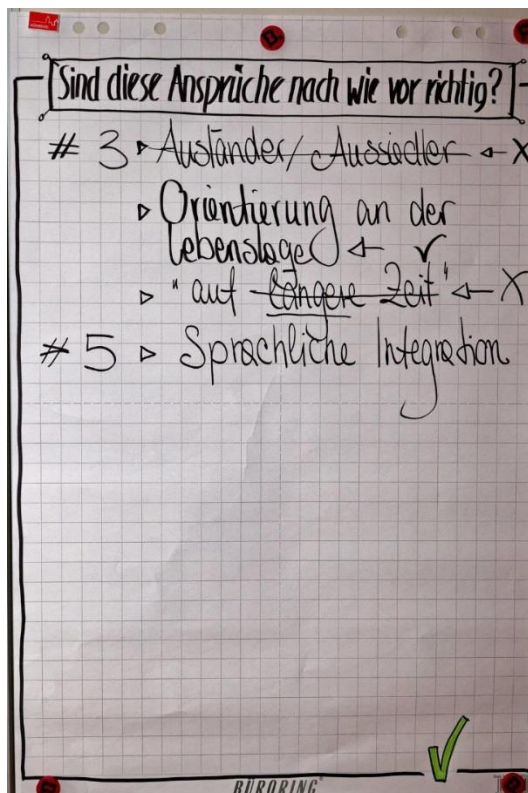 Sind diese Ansprüche nach wie vor richtig?
# 3 ▹ Ausländer/Aussiedler ← X
▹ Orientierung an der
Lebenslage ← ✓
▹ "auf längere Zeit" ← X
# 5 ▹ Sprachliche Integration
BÜRORING